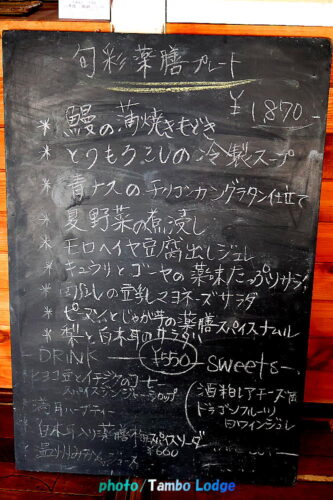 旬彩薬膳プレート
¥1,870
* 鰻の蒲焼きもどき
* とうもろこしの冷製スープ
* 青ナスのチリコンカングラタン仕立て
* 夏野菜の煮浸し
* モロヘイヤ豆腐出しジュレ
* キュウリとゴーヤの薬味たっぷりサラダ
* の豆乳マヨネーズサラダ
* ピーマンとじゃが芋の薬膳スパイスナムル
* 梨と白木耳のサラダ
DRINK ¥550 sweets
ヒヨコ豆とイチジクのコーヒー
スパイスジンジャーシロップ
ハーブティー
白木耳入り薬膳梅スパイスソーダ
¥660
温州みかんジュース
酒粕レアチーズ風
ドラゴンフルーツ
白ワインジュレ
photo / Tambo Lodge